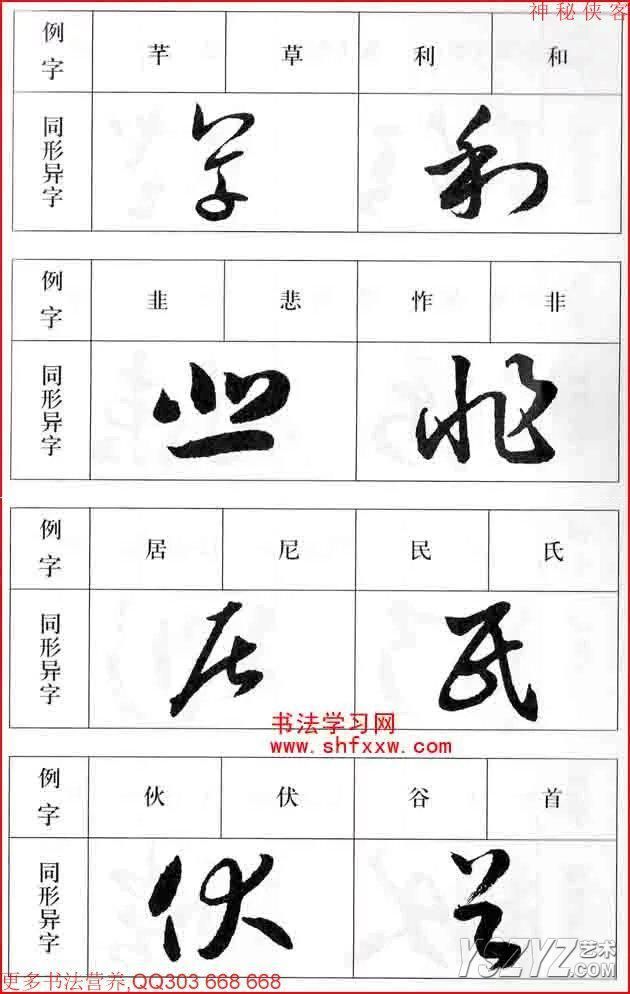 神秘侠客
例字 芊 草 利 和
同形异字
例字 韭 悲 怍 非
同形异字
例字 居 尼 民 氏
同形异字
书法学习网
www.shfxxw.com
例字 伙 伏 谷 首
同形异字
YSZYZ艺术
.com
更多书法营养,QQ303 668 668